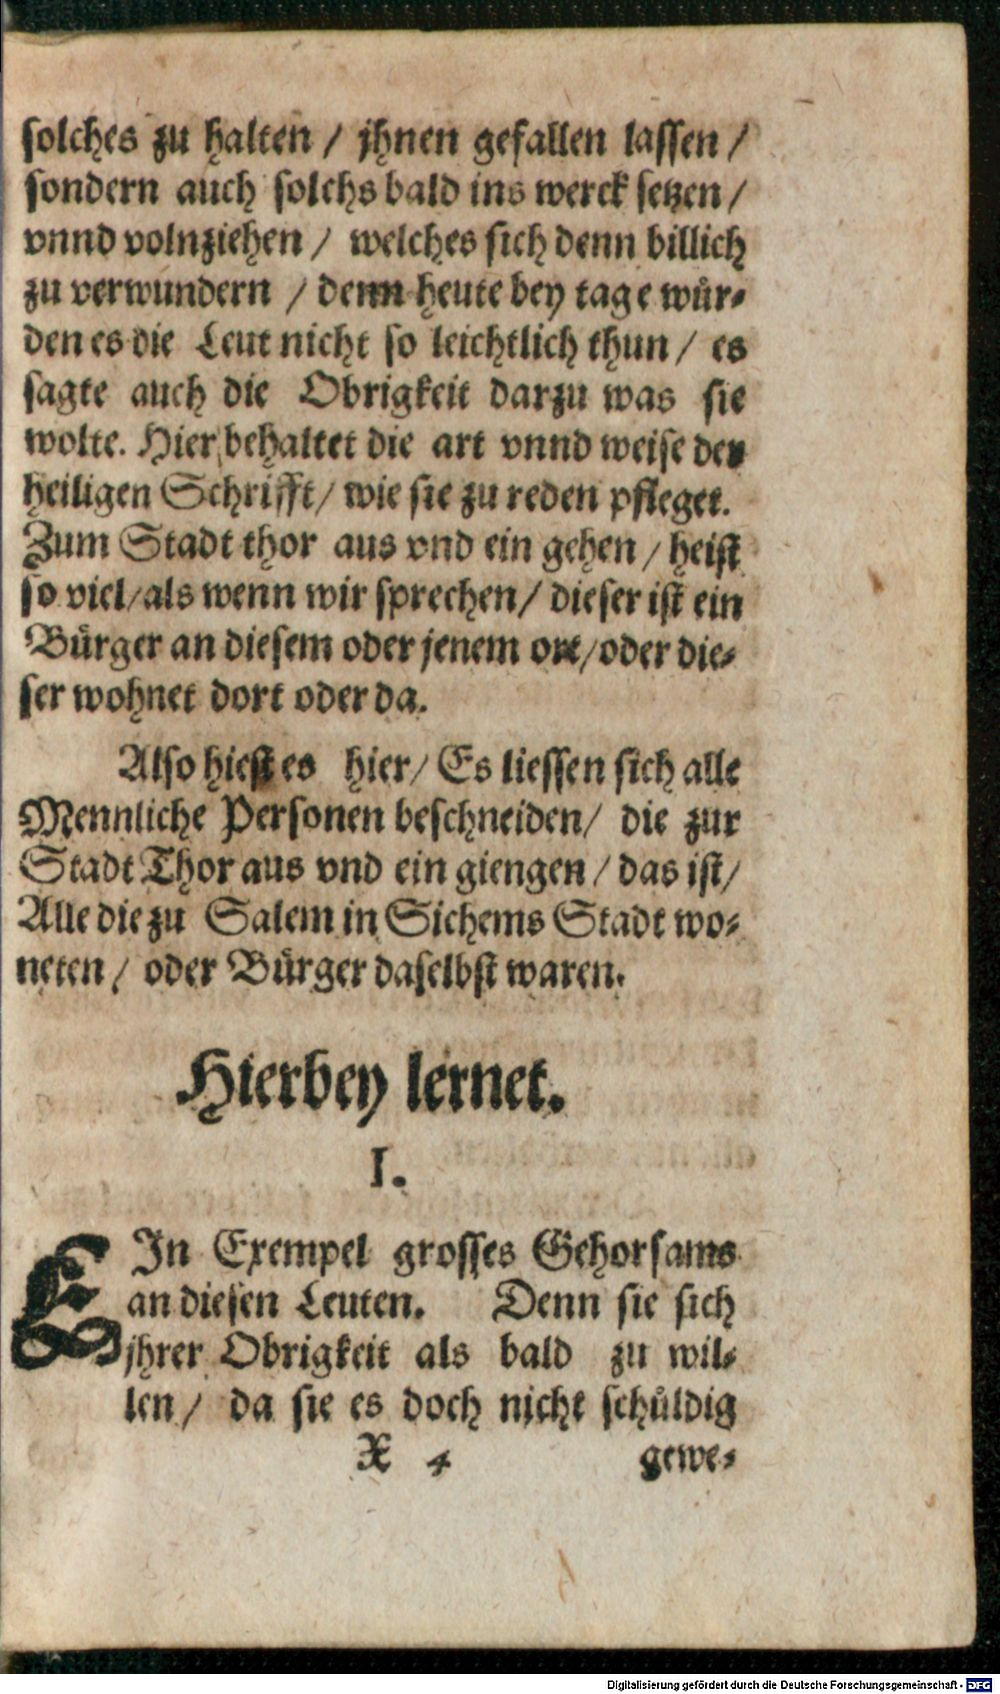 solches zu halten / jhnen gefallen lassen /
sondern auch solchs bald ins werck setzen /
vnnd volnziehen / welches sich denn billich
zu verwundern / denn heute bey tage wuͤr-
den es die Leut nicht so leichtlich thun / es
sagte auch die Obrigkeit darzu was sie
wolte. Hier behaltet die art vnnd weise der
heiligen Schrifft / wie sie zu reden pfleget.
Zum Stadt thor aus vnd ein gehen / heist
so viel / als wenn wir sprechen / dieser ist ein
Buͤrger an diesem oder jenem ort / oder die-
ser wohnet dort oder da.
Also hiest es hier / Es liessen sich alle
Mennliche Personen beschneiden / die zur
Stadt Thor aus vnd ein giengen / das ist /
Alle die zu Salem in Sichems Stadt wo-
neten / oder Buͤrger daselbst waren.
Hierbey lernet.
I.
EIn Exempel grosses Gehorsams
an diesen Leuten. Denn sie sich
jhrer Obrigkeit als bald zu wil-
len / da sie es doch nicht schuͤldig
X 4 gewe-
Digitalisierung gefördert durch die Deutsche Forschungsgemeinschaft - DFG